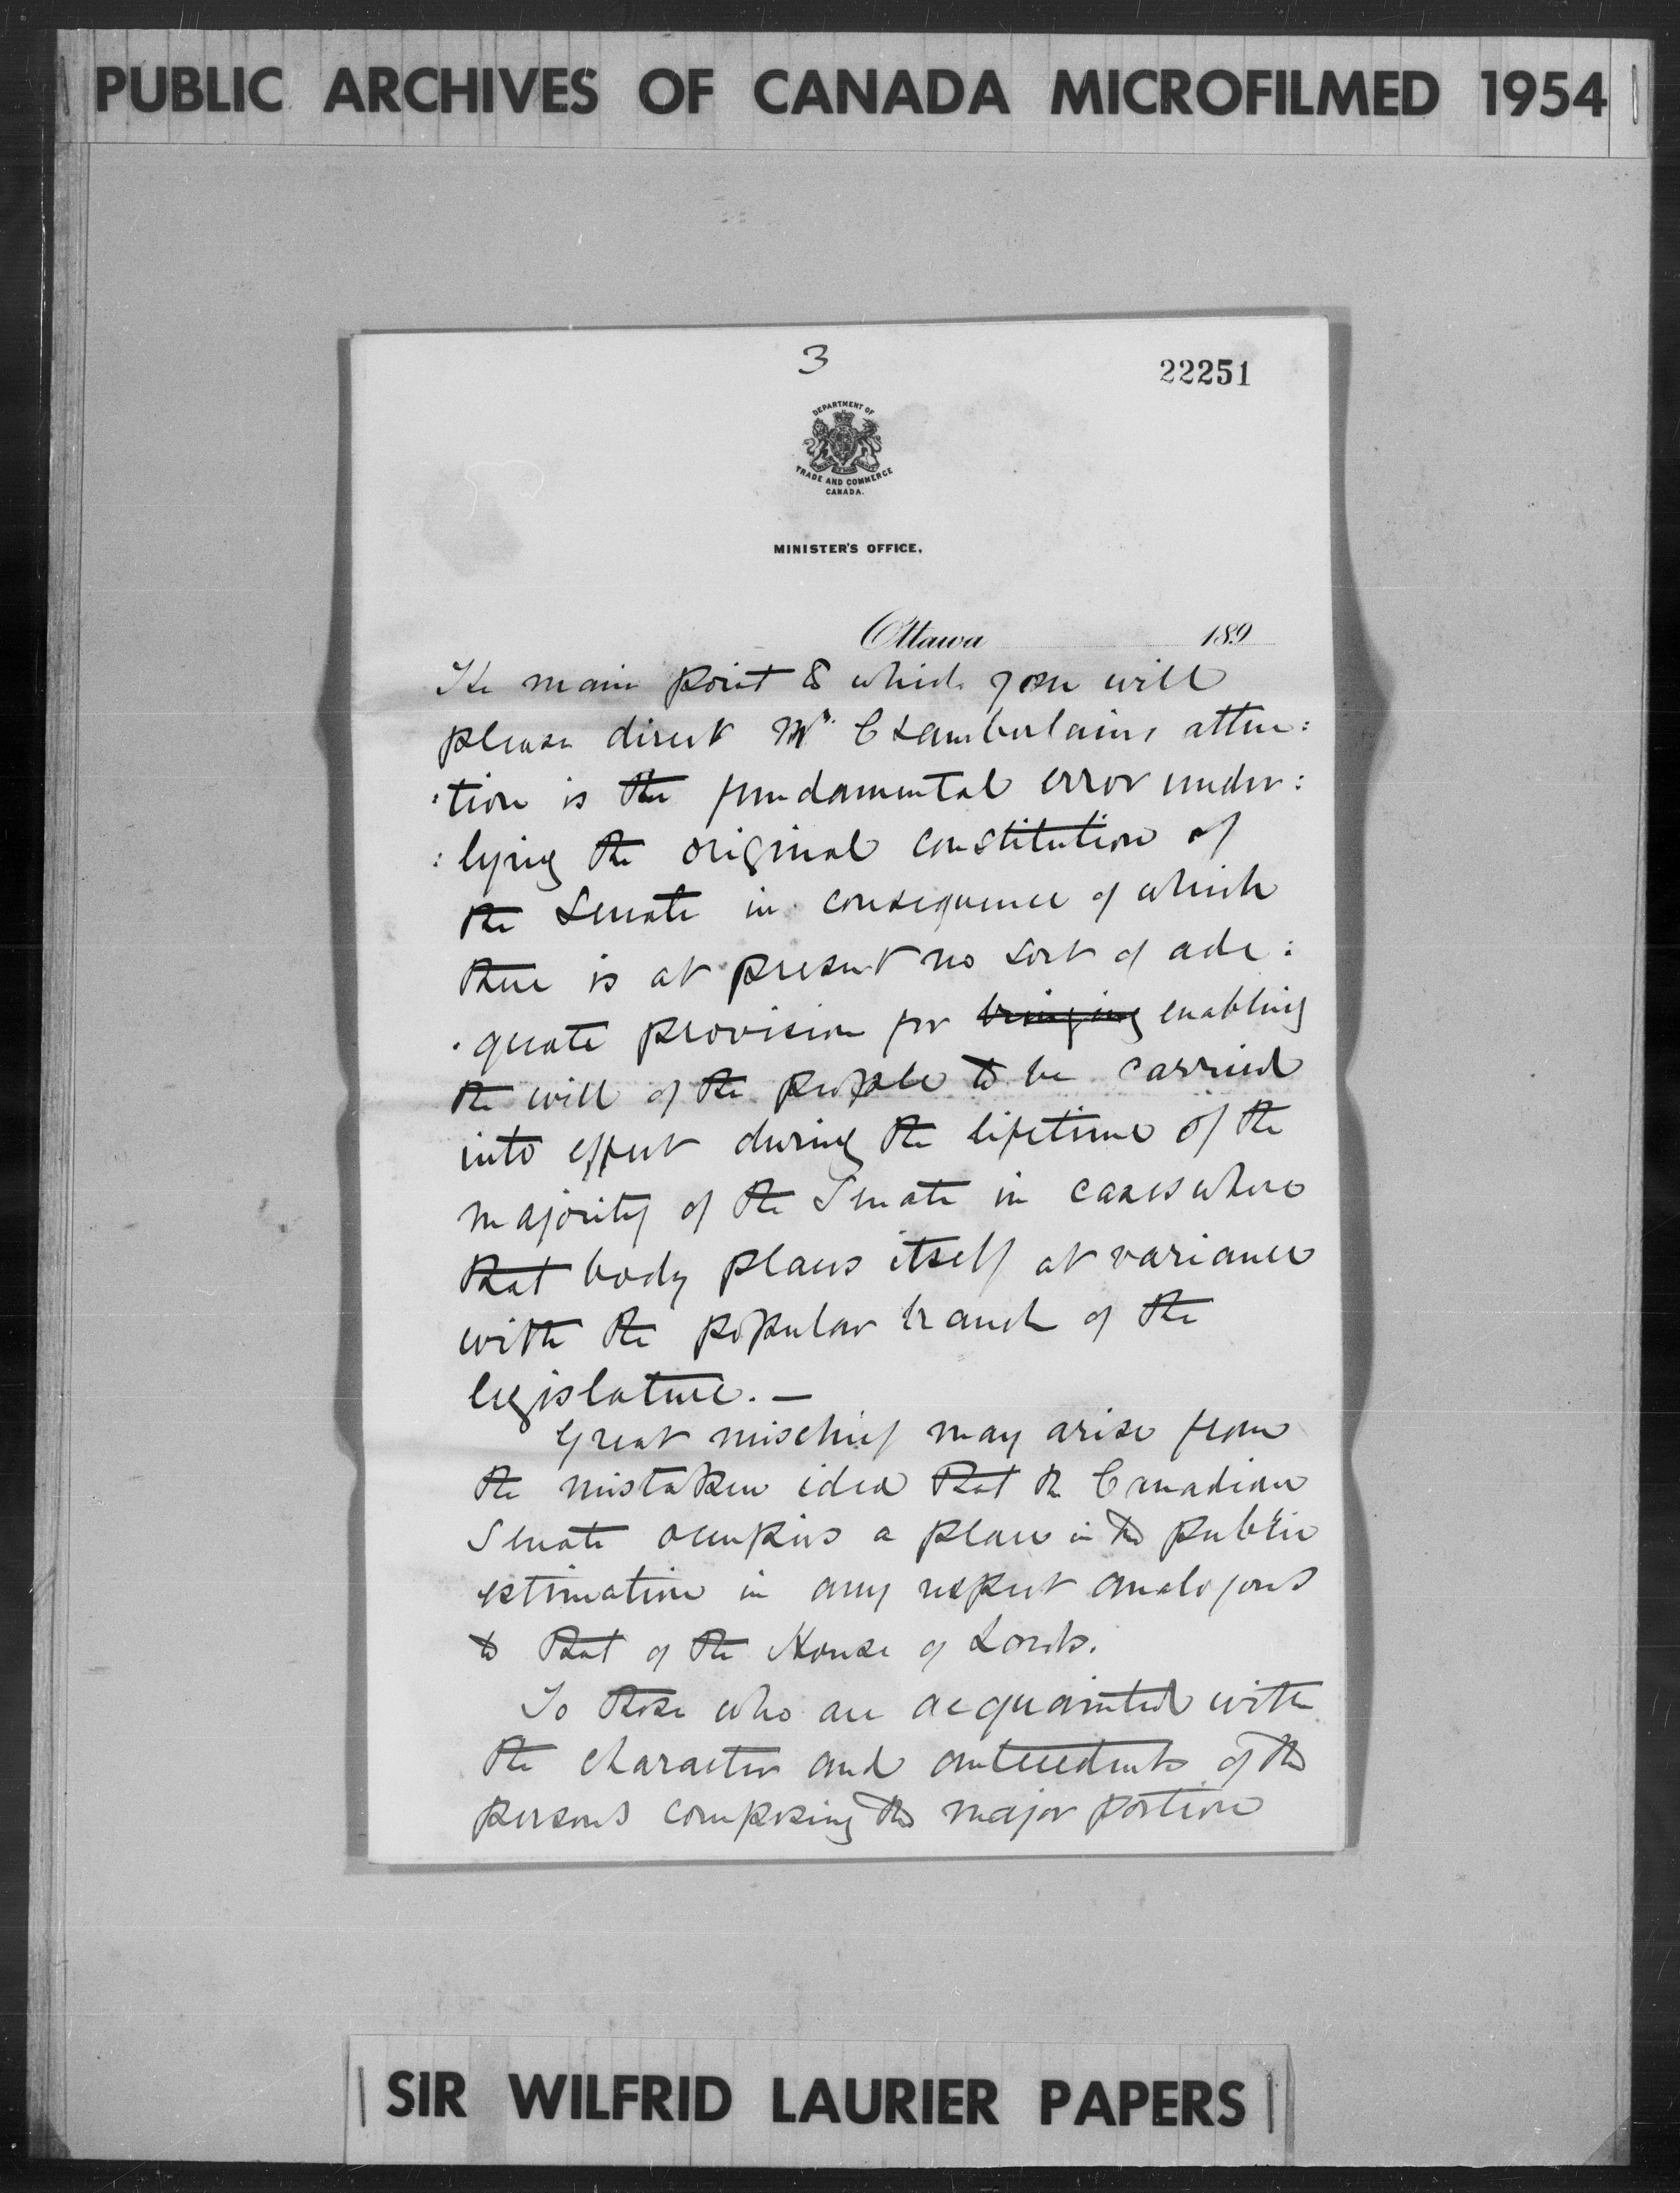 PUBLIC ARCHIVES OF CANADA MICROFILMED 1954
3
22251
DEPARTMENT OF
TRADE AND COMMERCE
CANADA.
MINISTER'S OFFICE,
Ottawa 189
The main point to which you will
please direct Mr. Chamberlains atten:
:tion is the fundamental error under:
:lying the original constitution of
the Senate in consequence of which
there is at present no sort of ade:
:quate provision for bringing enabling
the will of the people to be carried
into effect during the lifetime of the
majority of the Senate in cases where
that body places itself at variance
with the popular branch of the
legislature. —
Great mischief may arise from
the mistaken idea that the Canadian
Senate occupies a place in the public
estimation in any respect analogous
to that of the House of Lords.
To those who are acquainted with
the character and antecedents of the
persons composing the major portion
SIR WILFRID LAURIER PAPERS